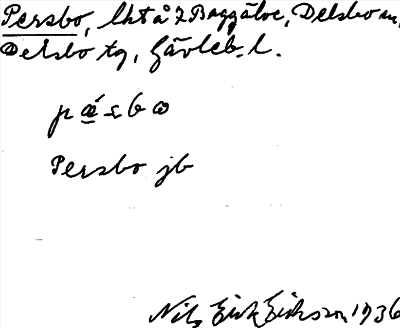 Persbo, lht å 7 Baggälve, Delsbo sn,
Delsbo tg, Gävleb. l.
pæ´sbω
Persbo jb
Nils Eric Ericsson 1936